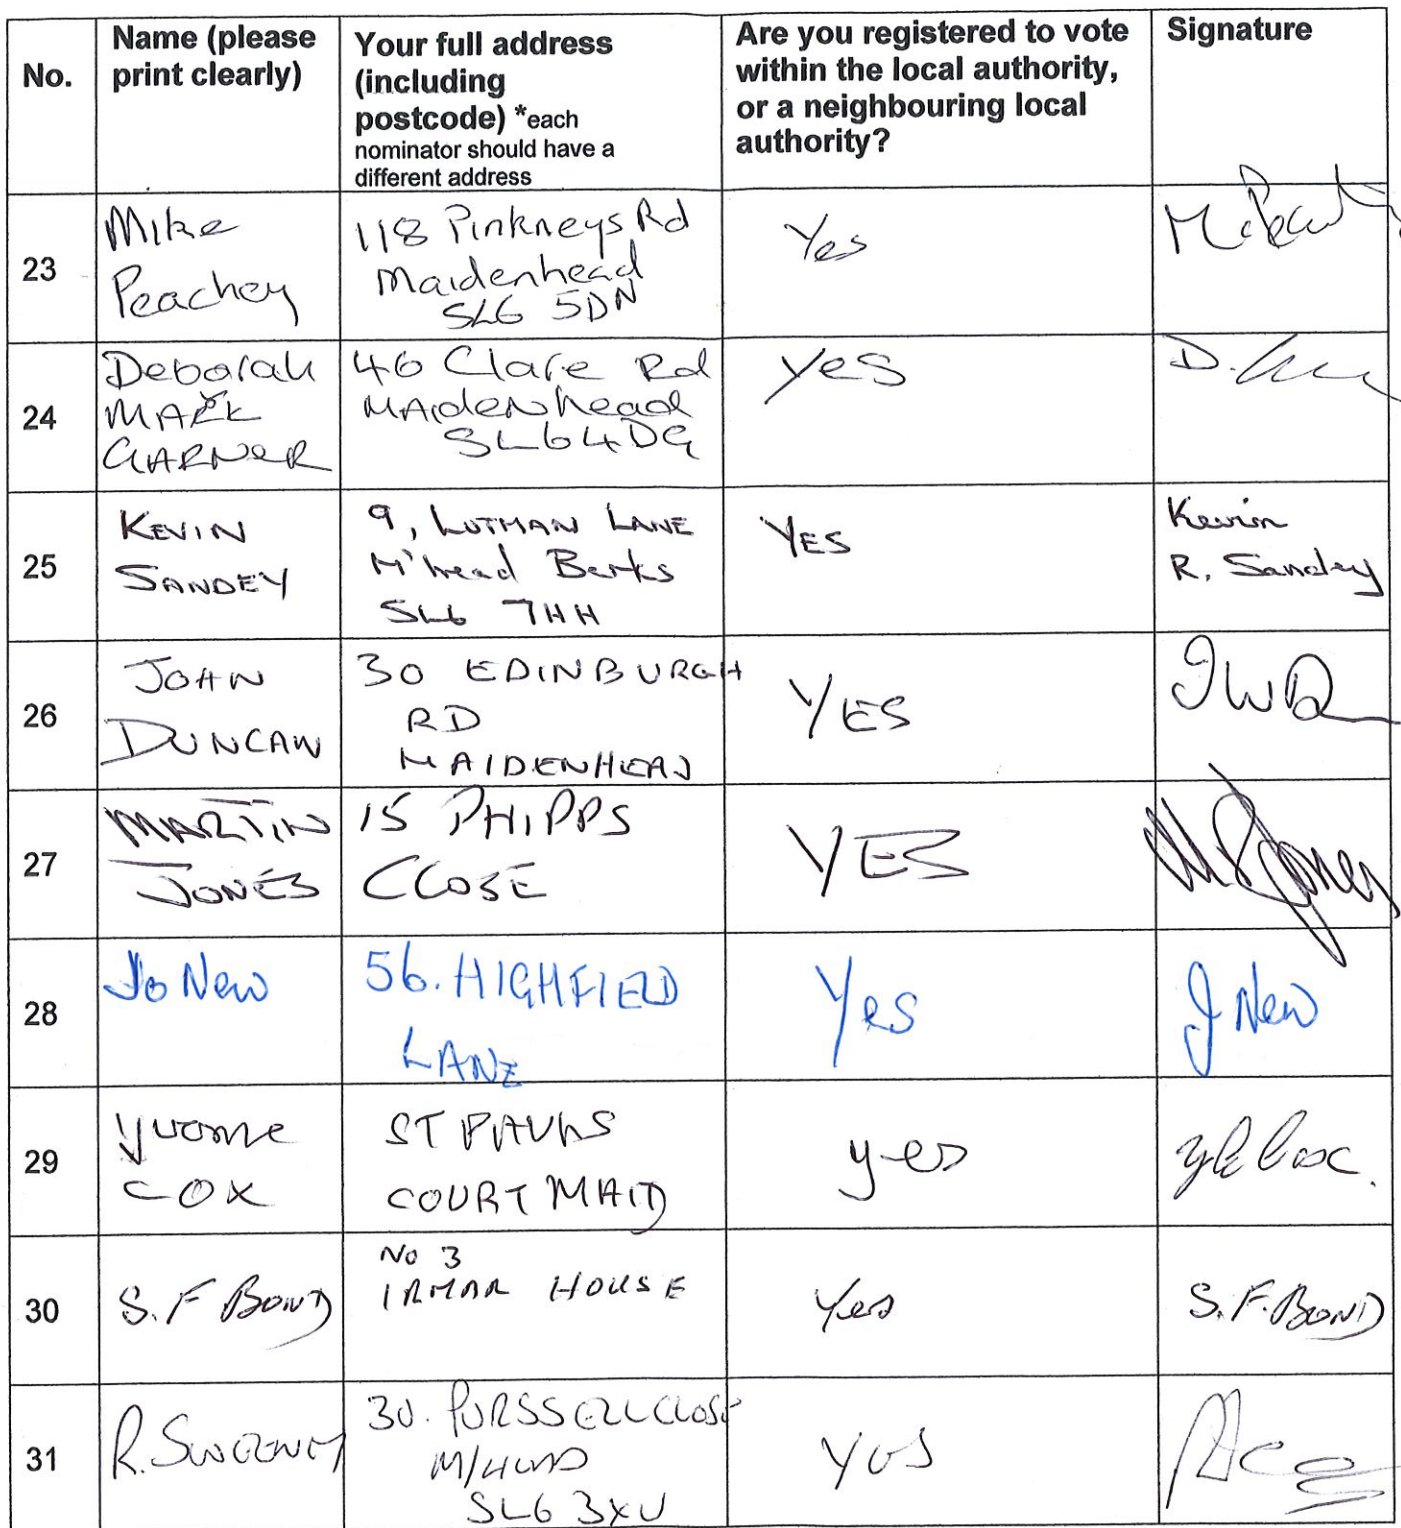 No.
Name (please
print clearly)
Your full address
(including
postcode) *each
nominator should have a
different address
Are you registered to vote
within the local authority,
or a neighbouring local
authority?
Signature
23
Mike
Peachey
118 Pinkneys Rd
Maidenhead
SL6 5DN
Yes
24
Deborah
MARK
GARNER
46 Clare Rd
MAidenhead
SL6 4DG
Yes
D.
25
KEVIN
SANDEY
9, LUTMAN LANE
M'head Berks
SL6 7HH
YES
Kevin
R. Sandey
26
JOHN
DUNCAN
30 EDINBURGH
RD
MAIDENHEAD
YES
27
MARTIN
JONES
15 PHIPPS
CLOSE
YES
28
Jo New
56. HIGHFIELD
LANE
Yes
J New
29
Yvonne
COX
ST PAULS
COURT MAID
yes
30
S. F BOND
No 3
IRMAR HOUSE
Yes
S. F. BOND
31
R. SWEENEY
30. PURSSELL CLOSE
M/HEAD
SL6 3XU
YES